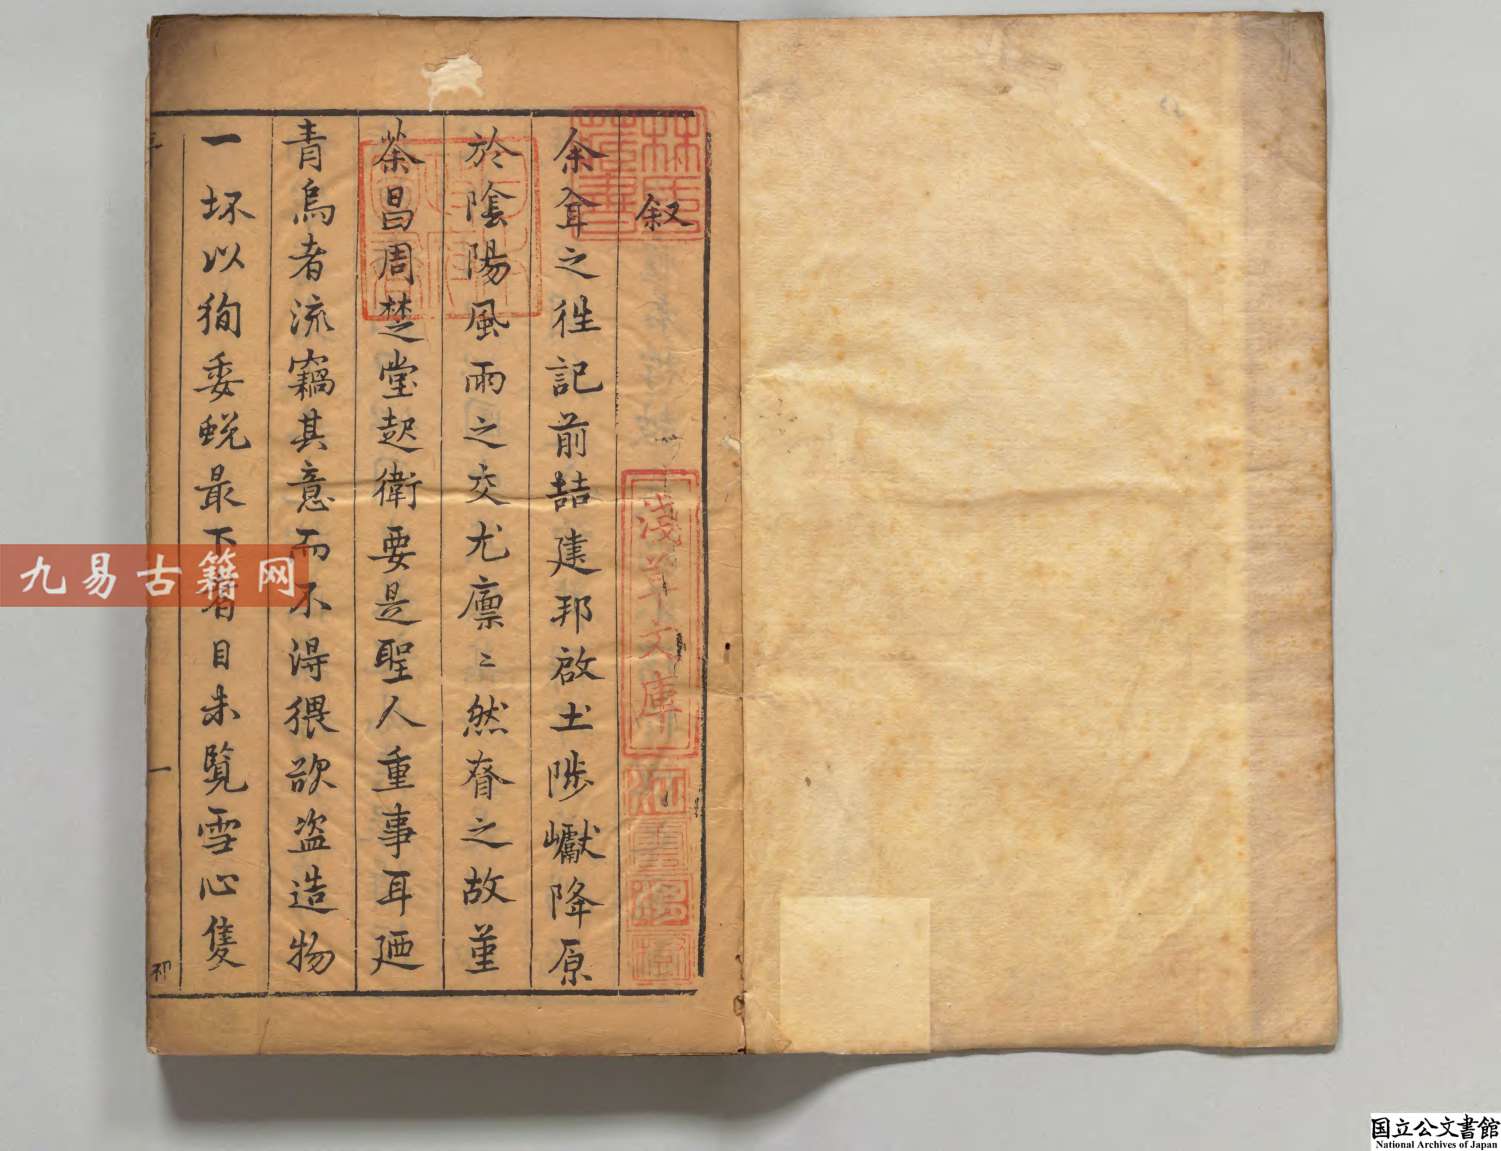 叙
余耷之徃記前喆建邦啟土陟巘降原
於隂陽風雨之交尤廪〻然眘之故堇
荼昌周楚堂起衛要是聖人重事耳廼
青烏者流竊其意而不淂猥欲盗造物
一坏以狥委蛻最下者目未覽雪心隻
一
林氏藏書
淺草文庫
九易古籍网
国立公文書館
National Archives of Japan